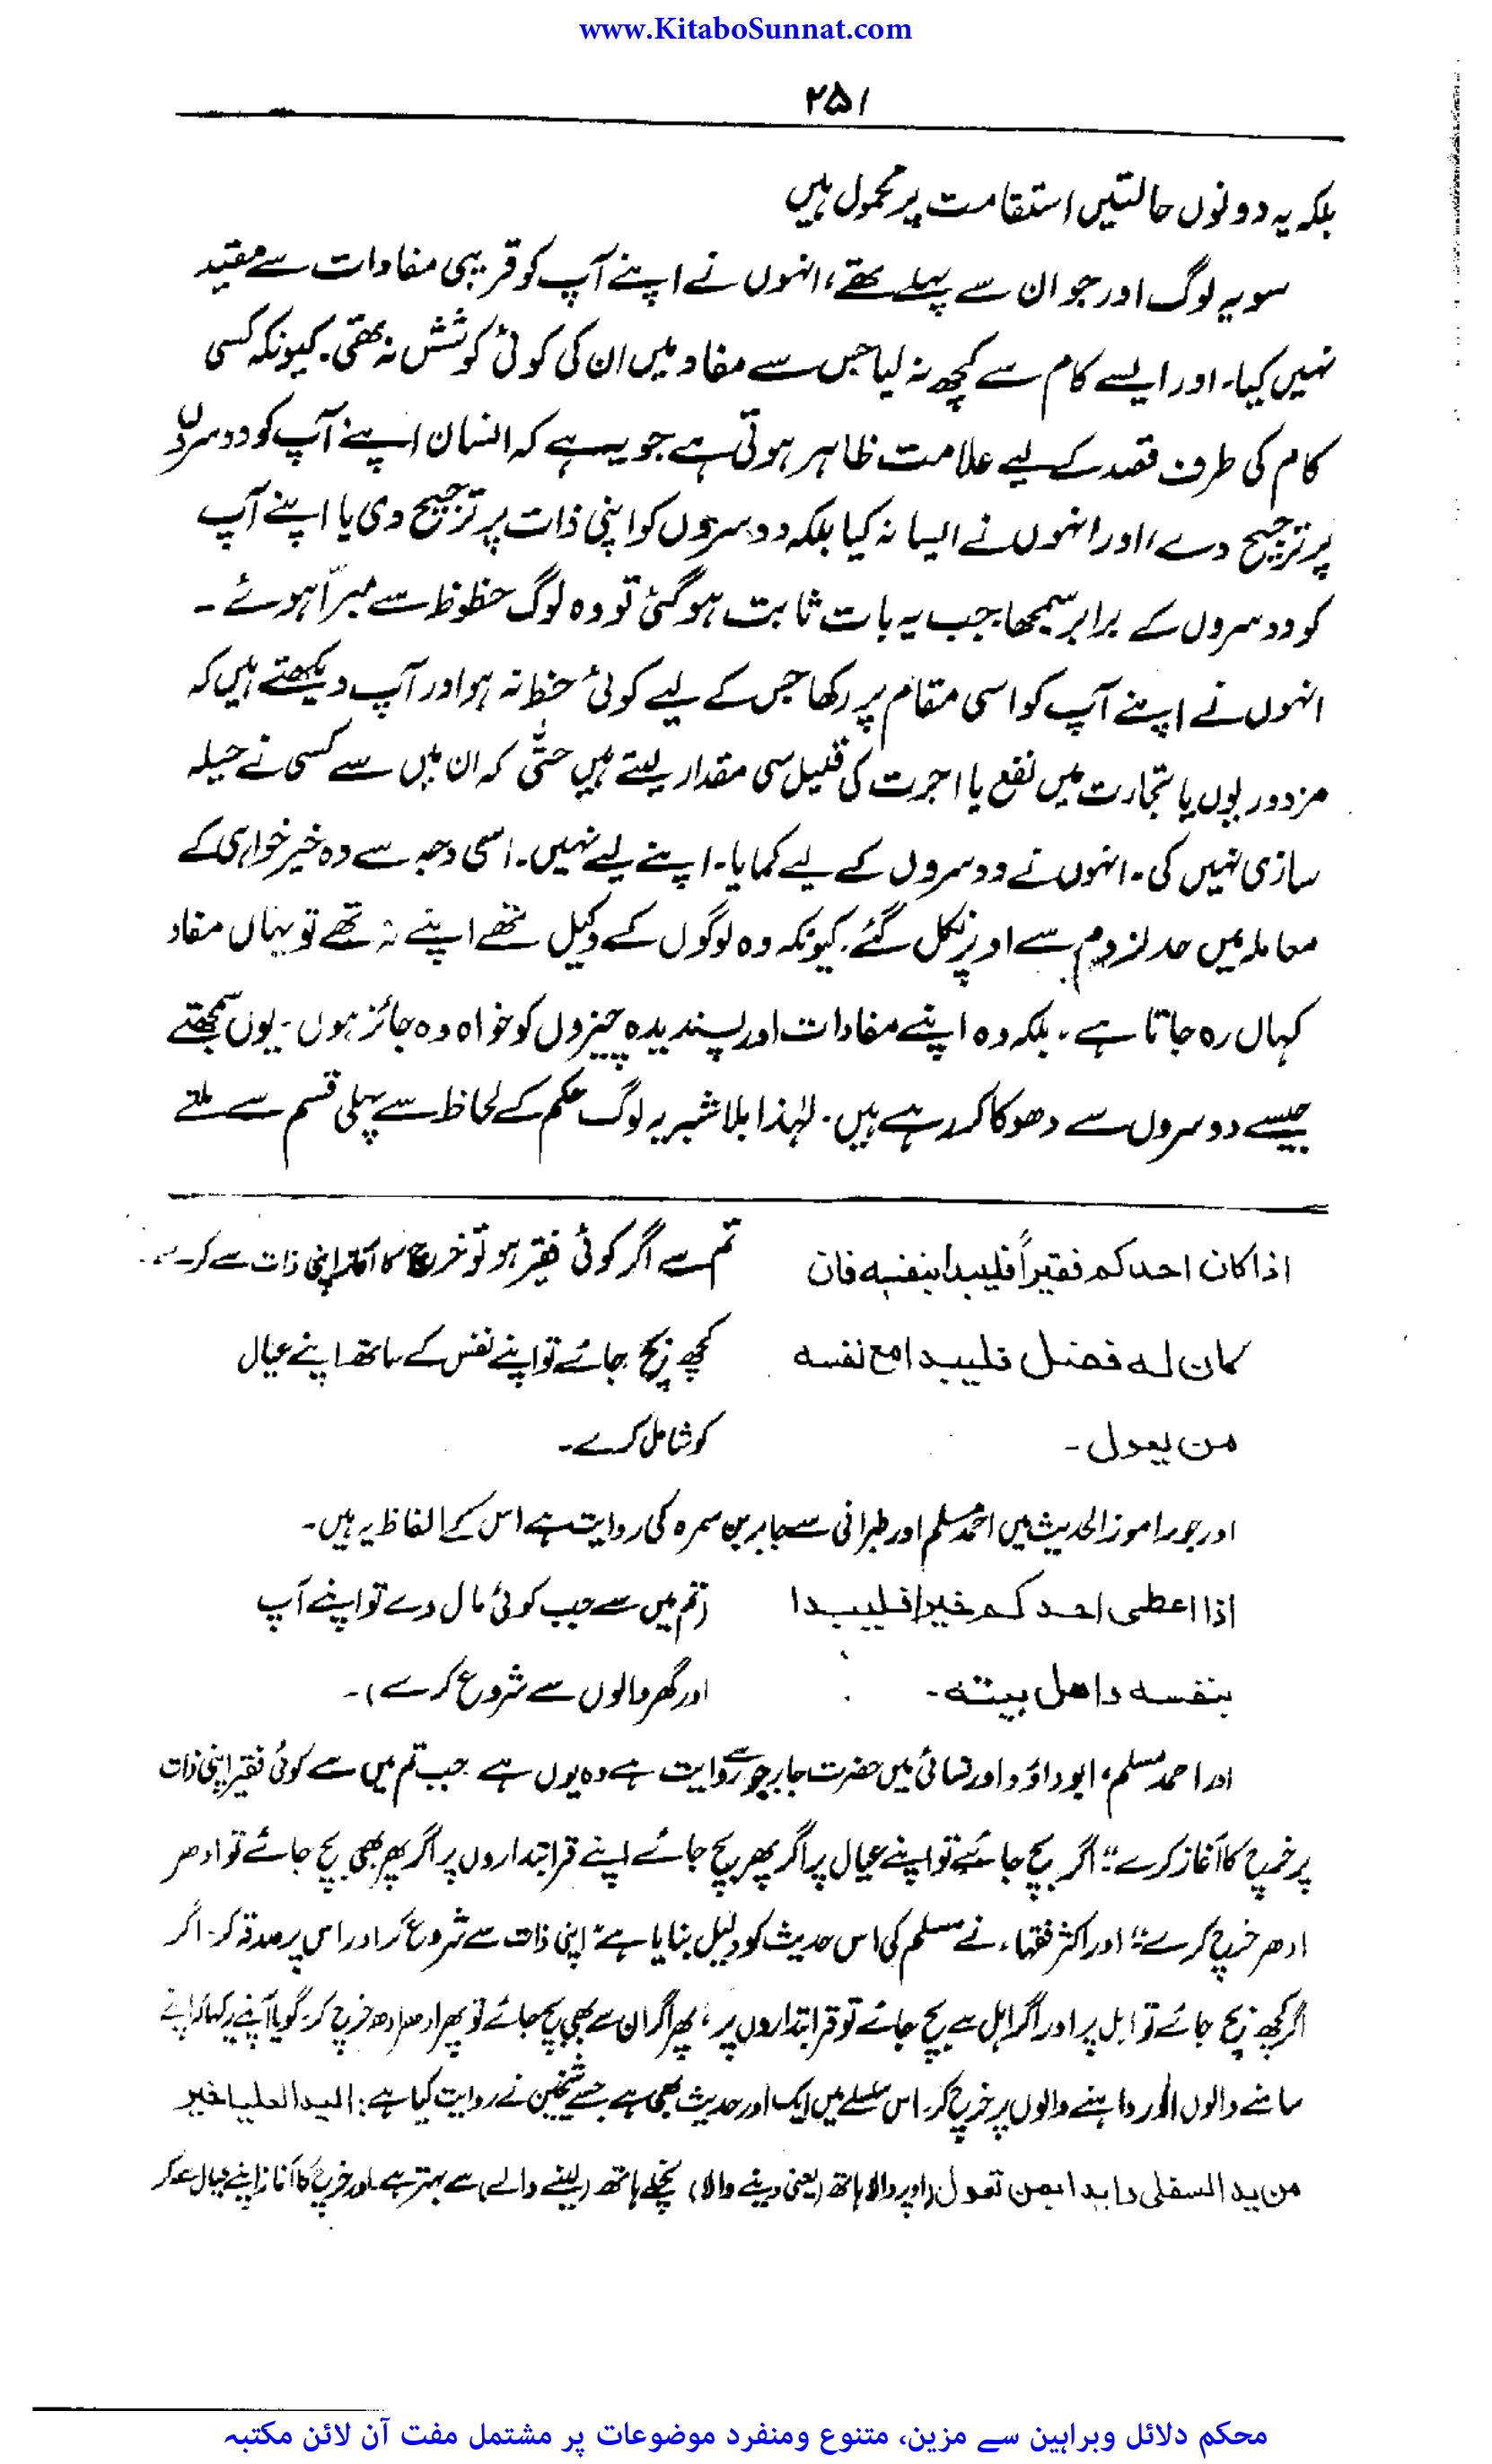 www.KitaboSunnat.com
۲۵۱
بلکہ یہ دونوں حالتیں استقامت پر محمول ہیں
سو یہ لوگ اور جو ان سے پہلے تھے، انہوں نے اپنے آپ کو قریبی مفادات سے مقید
نہیں کیا۔ اور ایسے کام سے کچھ نہ لیا جس سے مفاد میں ان کی کوئی کوشش نہ تھی۔ کیونکہ کسی
کام کی طرف قصد کے لیے علامت ظاہر ہوتی ہے جو یہ ہے کہ انسان اپنے آپ کو دوسروں
پر ترجیح دے، اور انہوں نے ایسا نہ کیا بلکہ دوسروں کو اپنی ذات پر ترجیح دی یا اپنے آپ
کو دوسروں کے برابر سمجھا۔ جب یہ بات ثابت ہو گئی تو وہ لوگ حظوظ سے مبرّا ہوئے۔
انہوں نے اپنے آپ کو اسی مقام پر رکھا جس کے لیے کوئی حظ نہ ہو اور آپ دیکھتے ہیں کہ
مزدوریوں یا تجارت میں نفع یا اجرت کی قلیل سی مقدار لیتے ہیں حتّٰی کہ ان میں سے کسی نے حیلہ
سازی نہیں کی۔ انہوں نے دوسروں کے لیے کمایا۔ اپنے لیے نہیں۔ اسی وجہ سے وہ خیر خواہی کے
معاملہ میں حد لزوم سے اوپر نکل گئے۔ کیونکہ وہ لوگوں کے وکیل تھے اپنے نہ تھے تو یہاں مفاد
کہاں رہ جاتا ہے، بلکہ وہ اپنے مفادات اور پسندیدہ چیزوں کو خواہ وہ جائز ہوں۔ یوں سمجھتے
جیسے دوسروں سے دھوکا کر رہے ہیں۔ لہٰذا بلاشبہ یہ لوگ حکم کے لحاظ سے پہلی قسم سے ملتے
اذا کان احدکم فقیراً فلیبدا بنفسہ فان تم سے اگر کوئی فقیر ہو تو خرچ کا آغاز اپنی ذات سے کرے۔
کان لہ فضل فلیبدا مع نفسہ کچھ بچ جائے تو اپنے نفس کے ساتھ اپنے عیال
من یعول۔ کو شامل کرے۔
اور جو راموز الحدیث میں احمد مسلم اور طبرانی سے جابر بن سمرہ کی روایت ہے اس کے الفاظ یہ ہیں۔
اذا اعطی احدکم خیرا فلیبدا (تم میں سے جب کوئی مال دے تو اپنے آپ
بنفسہ واھل بیتہ۔ اور گھر والوں سے شروع کرے)۔
اور احمد مسلم، ابوداؤد اور نسائی میں حضرت جابر سے جو روایت ہے وہ یوں ہے جب تم میں سے کوئی فقیر اپنی ذات
پر خرچ کا آغاز کرے" اگر بچ جائے تو اپنے عیال پر اگر پھر بچ جائے اپنے قرابتداروں پر اگر پھر بھی بچ جائے تو ادھر
ادھر خرچ کرے" اور اکثر فقہاء نے مسلم کی اس حدیث کو دلیل بنایا ہے" اپنی ذات سے شروع کر اور اس پر صدقہ کر۔ اگر
اگر کچھ بچ جائے تو اہل پر اور اگر اہل سے بچ جائے تو قرابتداروں پر، پھر اگر ان سے بھی بچ جائے تو پھر ادھر ادھر خرچ کر۔ گویا آپ نے کہا کہ اپنے
سامنے والوں اور داہنے والوں پر خرچ کر۔ اس سلسلے میں ایک اور حدیث بھی ہے جسے شیخین نے روایت کیا ہے: الید العلیا خیر
من ید السفلی وابدا بمن تعول (اوپر والا ہاتھ (یعنی دینے والا) نچلے ہاتھ (لینے والے) سے بہتر ہے اور خرچ کا آغاز اپنے عیال سے کر
محکم دلائل وبراہین سے مزین، متنوع ومنفرد موضوعات پر مشتمل مفت آن لائن مکتبہ